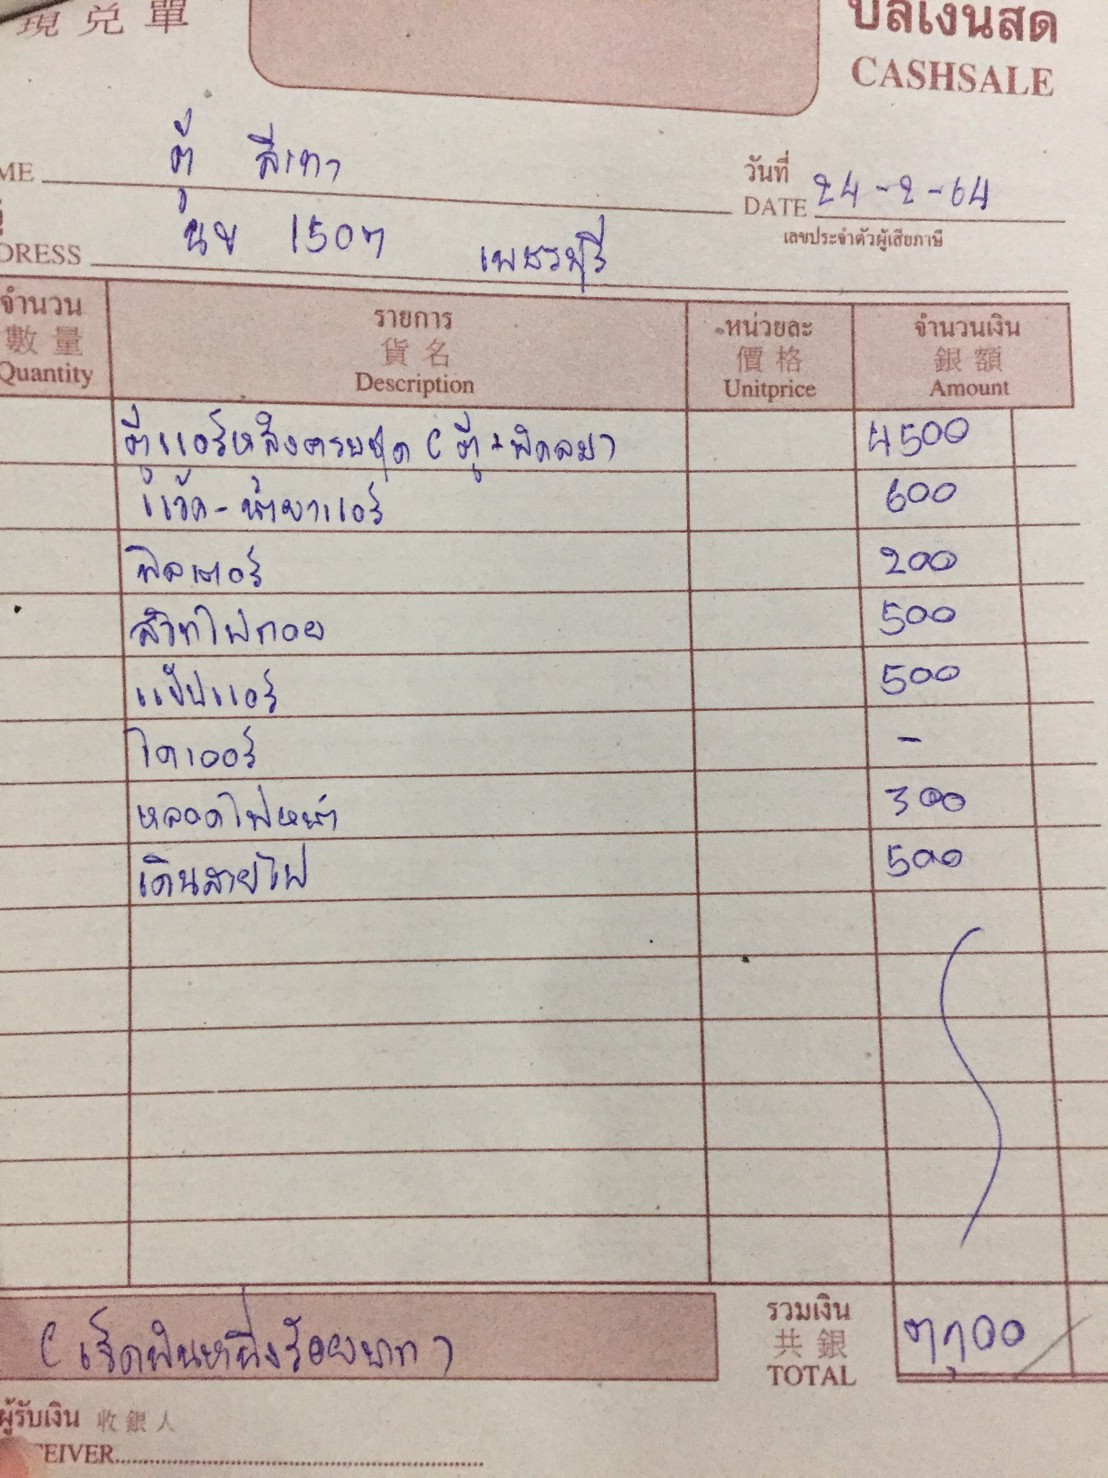 現兌單
บิลเงินสด
CASHSALE
ME ตู้ สีเทา
วันที่
DATE 24-2-64
เลขประจำตัวผู้เสียภาษี
DRESS นข 1507 เพชรบุรี
จำนวน รายการ หน่วยละ จำนวนเงิน
數量 貨名 價格 銀額
Quantity Description Unitprice Amount
ตู้แอร์หลังครบชุด (ตู้+พัดลม) 4500
แว๊ค-น้ำยาแอร์ 600
ฟิลเตอร์ 200
สวิทไฟถอย 500
แป๊ปแอร์ 500
ไดเออร์ -
หลอดไฟหน้า 300
เดินสายไฟ 500
(เจ็ดพันหนึ่งร้อยบาท)
รวมเงิน
共銀
TOTAL 7100
ผู้รับเงิน 收銀人
CEIVER